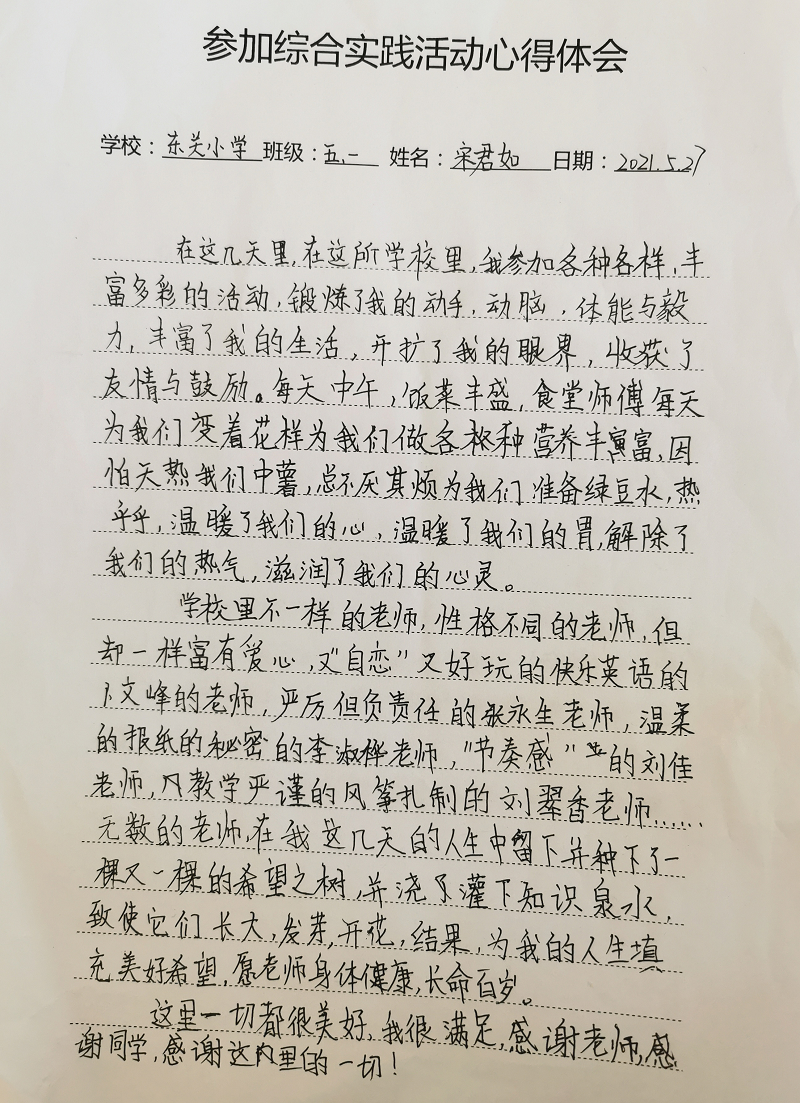 参加综合实践活动心得体会
学校：东关小学 班级：五.一 姓名：宋君如 日期：2021.5.27
在这几天里，在这所学校里，我参加各种各样，丰
富多彩的活动，锻炼了我的动手，动脑，体能与毅
力，丰富了我的生活，开扩了我的眼界，收获了
友情与鼓励。每天中午，饭菜丰盛，食堂师傅每天
为我们变着花样为我们做各种营养丰富，因
怕天热我们中薯，总不厌其烦为我们准备绿豆水，热
乎乎，温暖了我们的心，温暖了我们的胃，解除了
我们的热气，滋润了我们的心灵。
学校里不一样的老师，性格不同的老师，但
却一样富有爱心，又"自恋"又好玩的快乐英语的
卜文峰的老师，严厉但负责任的张永生老师，温柔
的报纸的秘密的李淑桦老师，"节奏感"的刘佳
老师，教学严谨的风筝扎制的刘翠香老师……
无数的老师，在我这几天的人生中留下并种下了一
棵又一棵的希望之树，并浇了灌下知识泉水，
致使它们长大，发芽，开花，结果，为我的人生填
充美好希望，愿老师身体健康，长命百岁。
这里一切都很美好，我很满足，感谢老师，感
谢同学，感谢这里的一切！